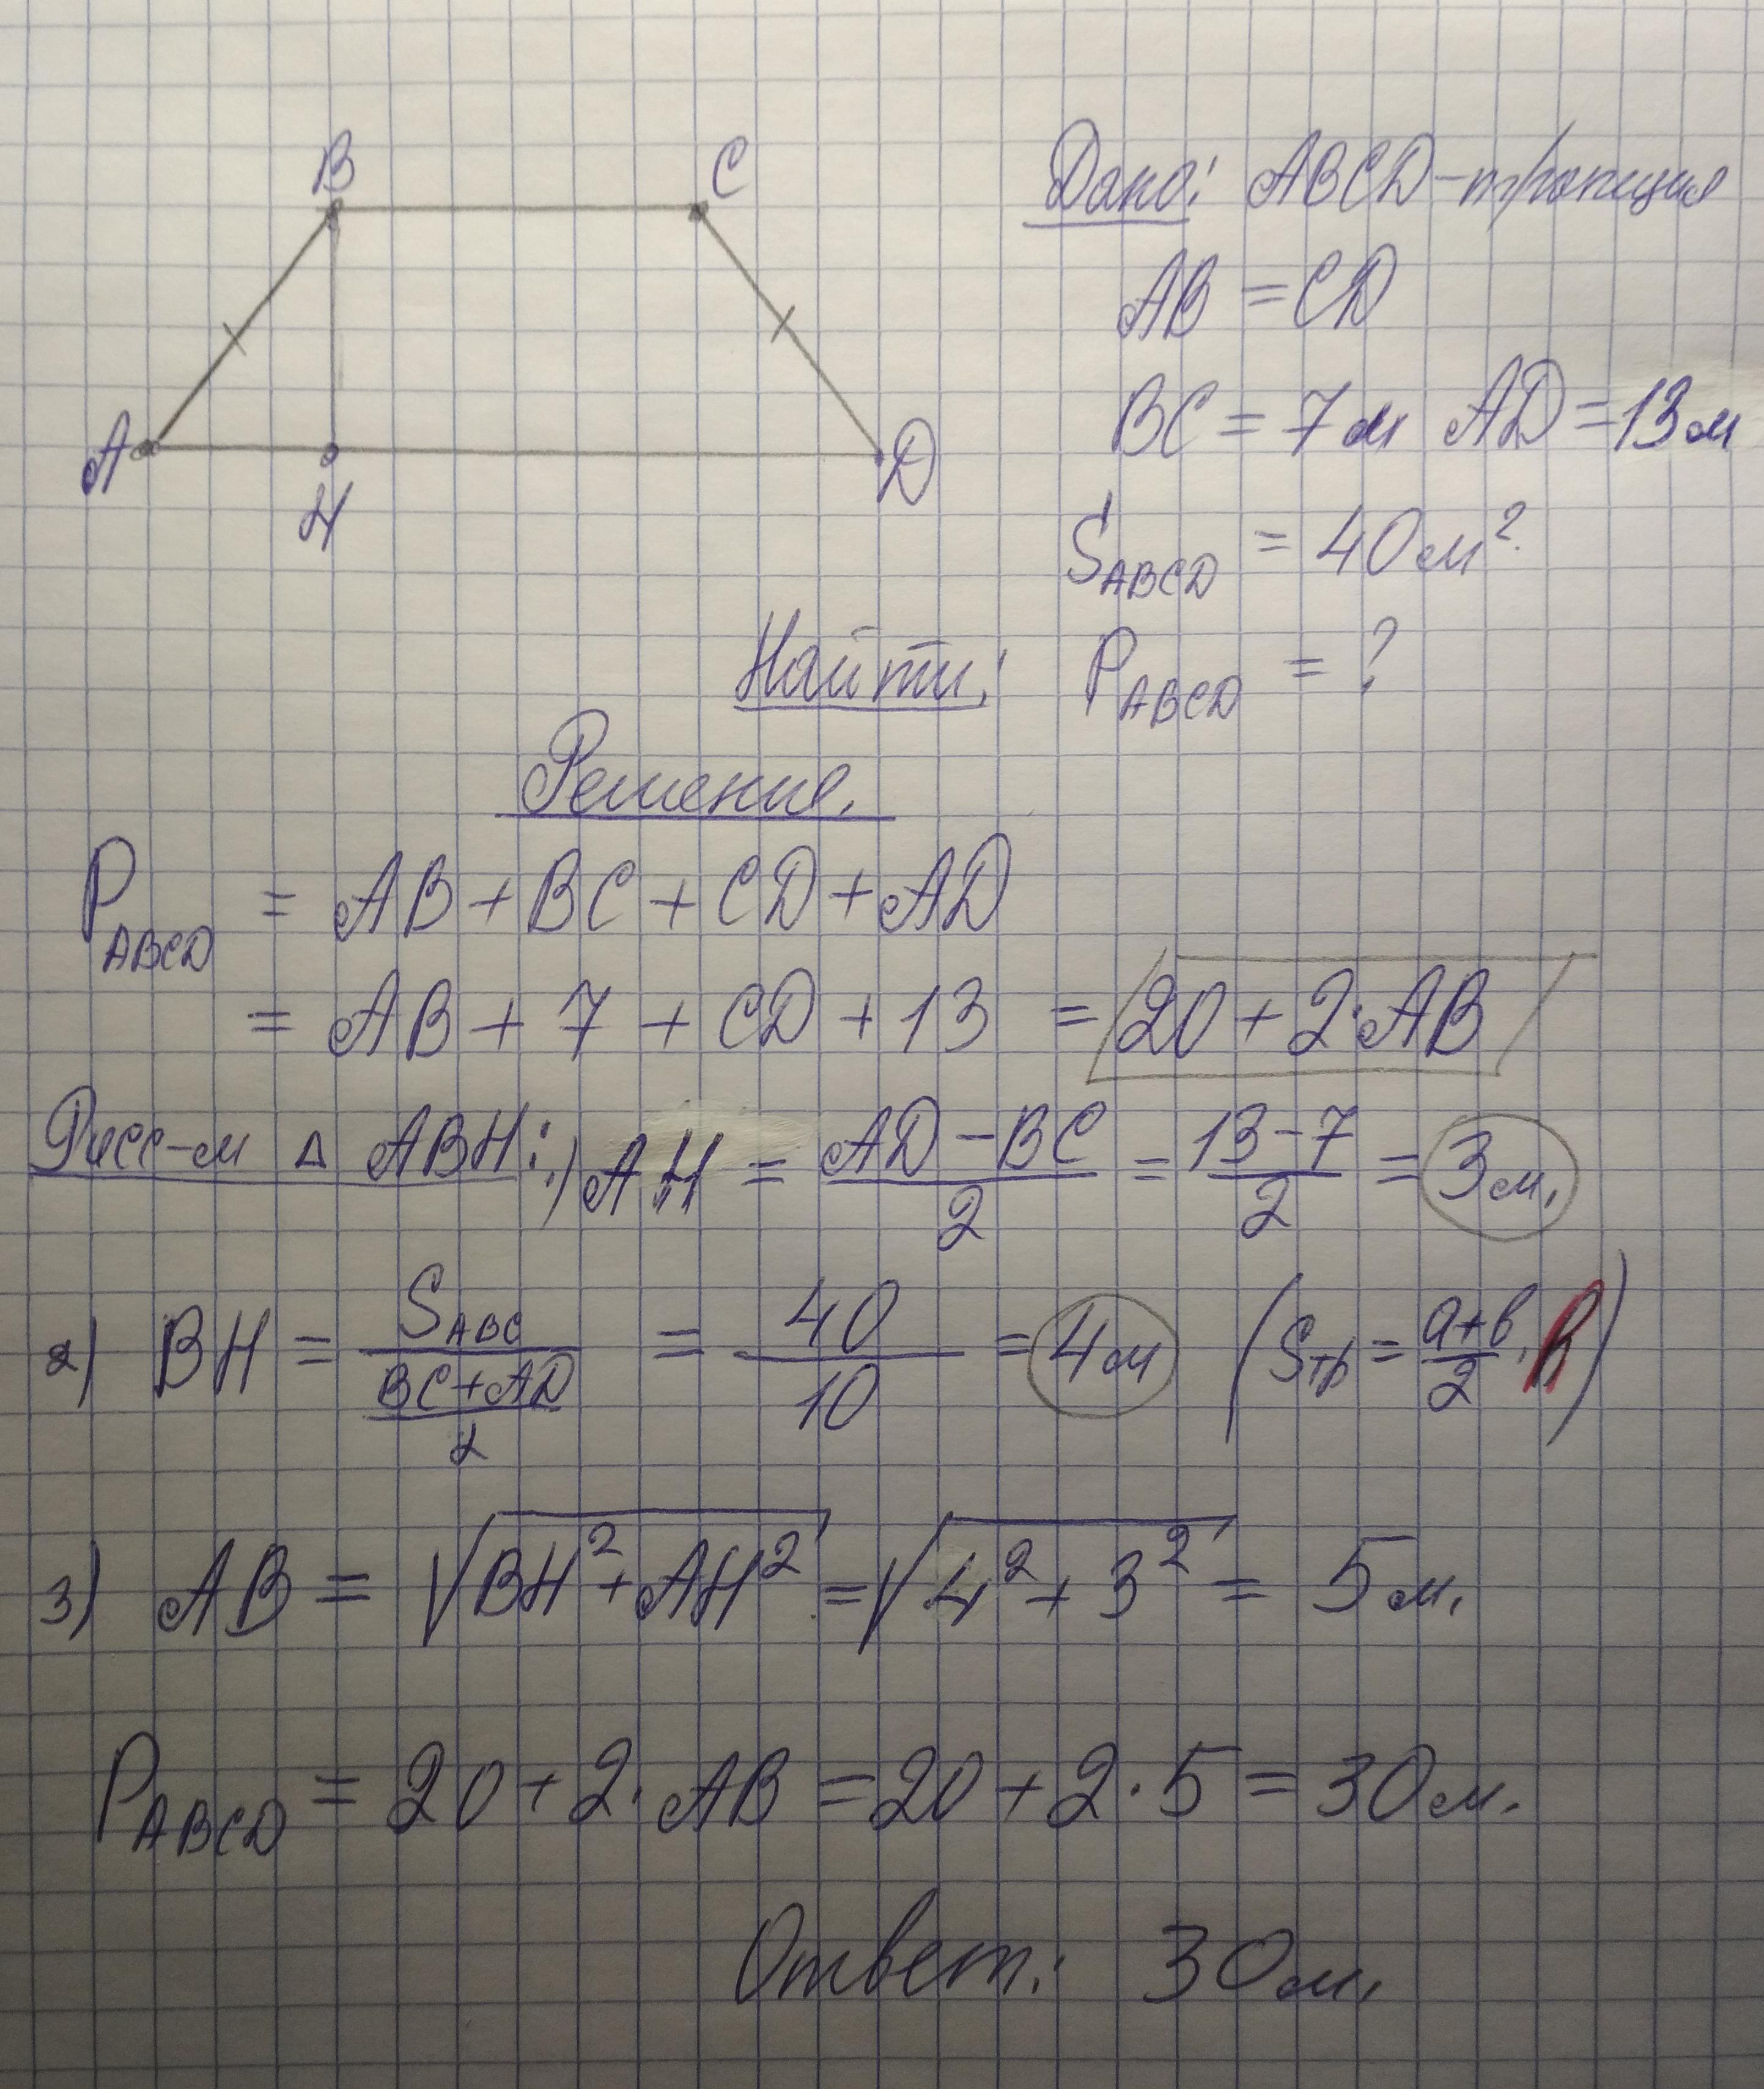 B C
A H D
Дано: ABCD-трапеция
AB = CD
BC = 7м AD = 13м
S_ABCD = 40м².
Найти: P_ABCD = ?
Решение.
P_ABCD = AB + BC + CD + AD
= AB + 7 + CD + 13 = 20 + 2·AB
Расс-м Δ ABH: 1) AH = (AD - BC)/2 = (13 - 7)/2 = 3м.
2) BH = S_ABC/((BC+AD)/2) = 40/10 = 4м (Sтр = (a+b)/2 · h)
3) AB = √(BH² + AH²) = √(4² + 3²) = 5м.
P_ABCD = 20 + 2·AB = 20 + 2·5 = 30м.
Ответ: 30м.